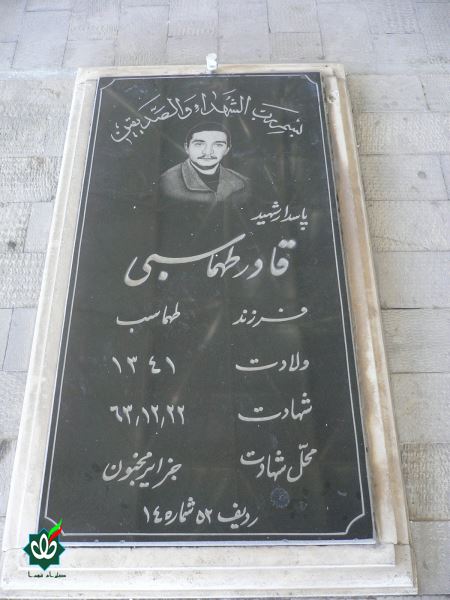 بسم رب الشهداء والصدیقین
پاسدار شهید
قادر طهماسبی
فرزند طهماسب
ولادت ۱۳۴۱
شهادت ۶۳٫۱۲٫۲۲
محلّ شهادت جزایر مجنون
ردیف ۵۲ شماره ۱۴